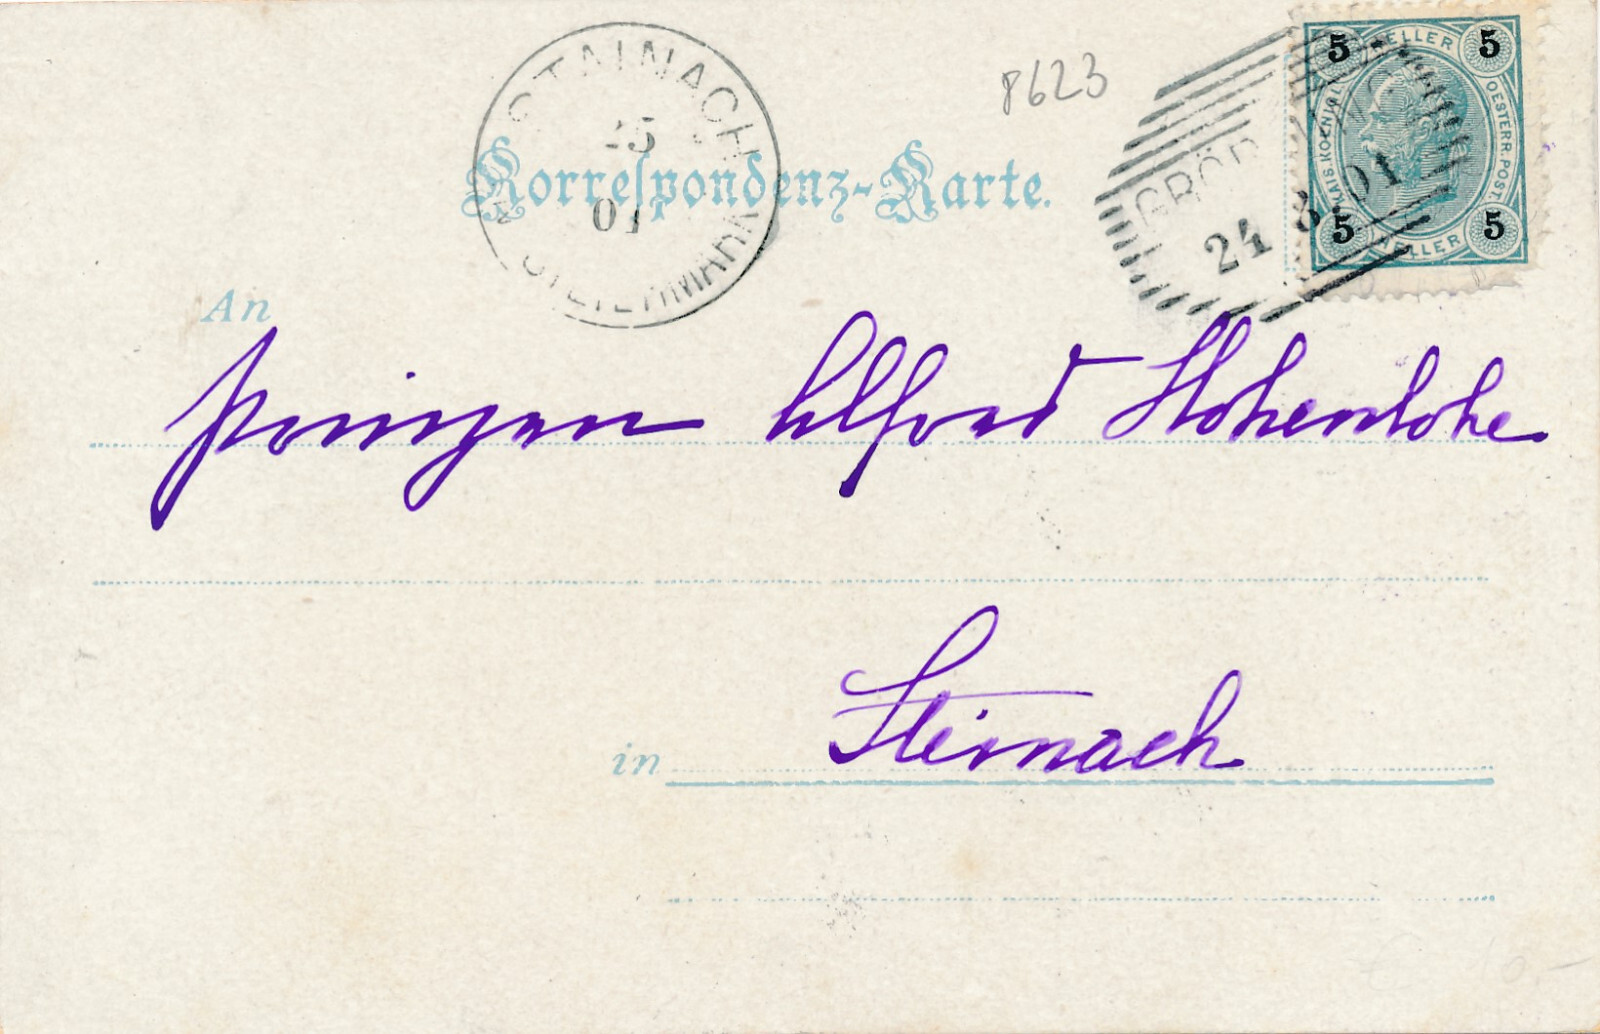 8623
5 HELLER 5
KAIS. KOENIGL.
OESTERR. POST.
5 HELLER 5
24 8 01
STAINACH
25
01
STEIERMARK
Korrespondenz-Karte.
An
Prinzen Alfred Hohenlohe
in Steinach